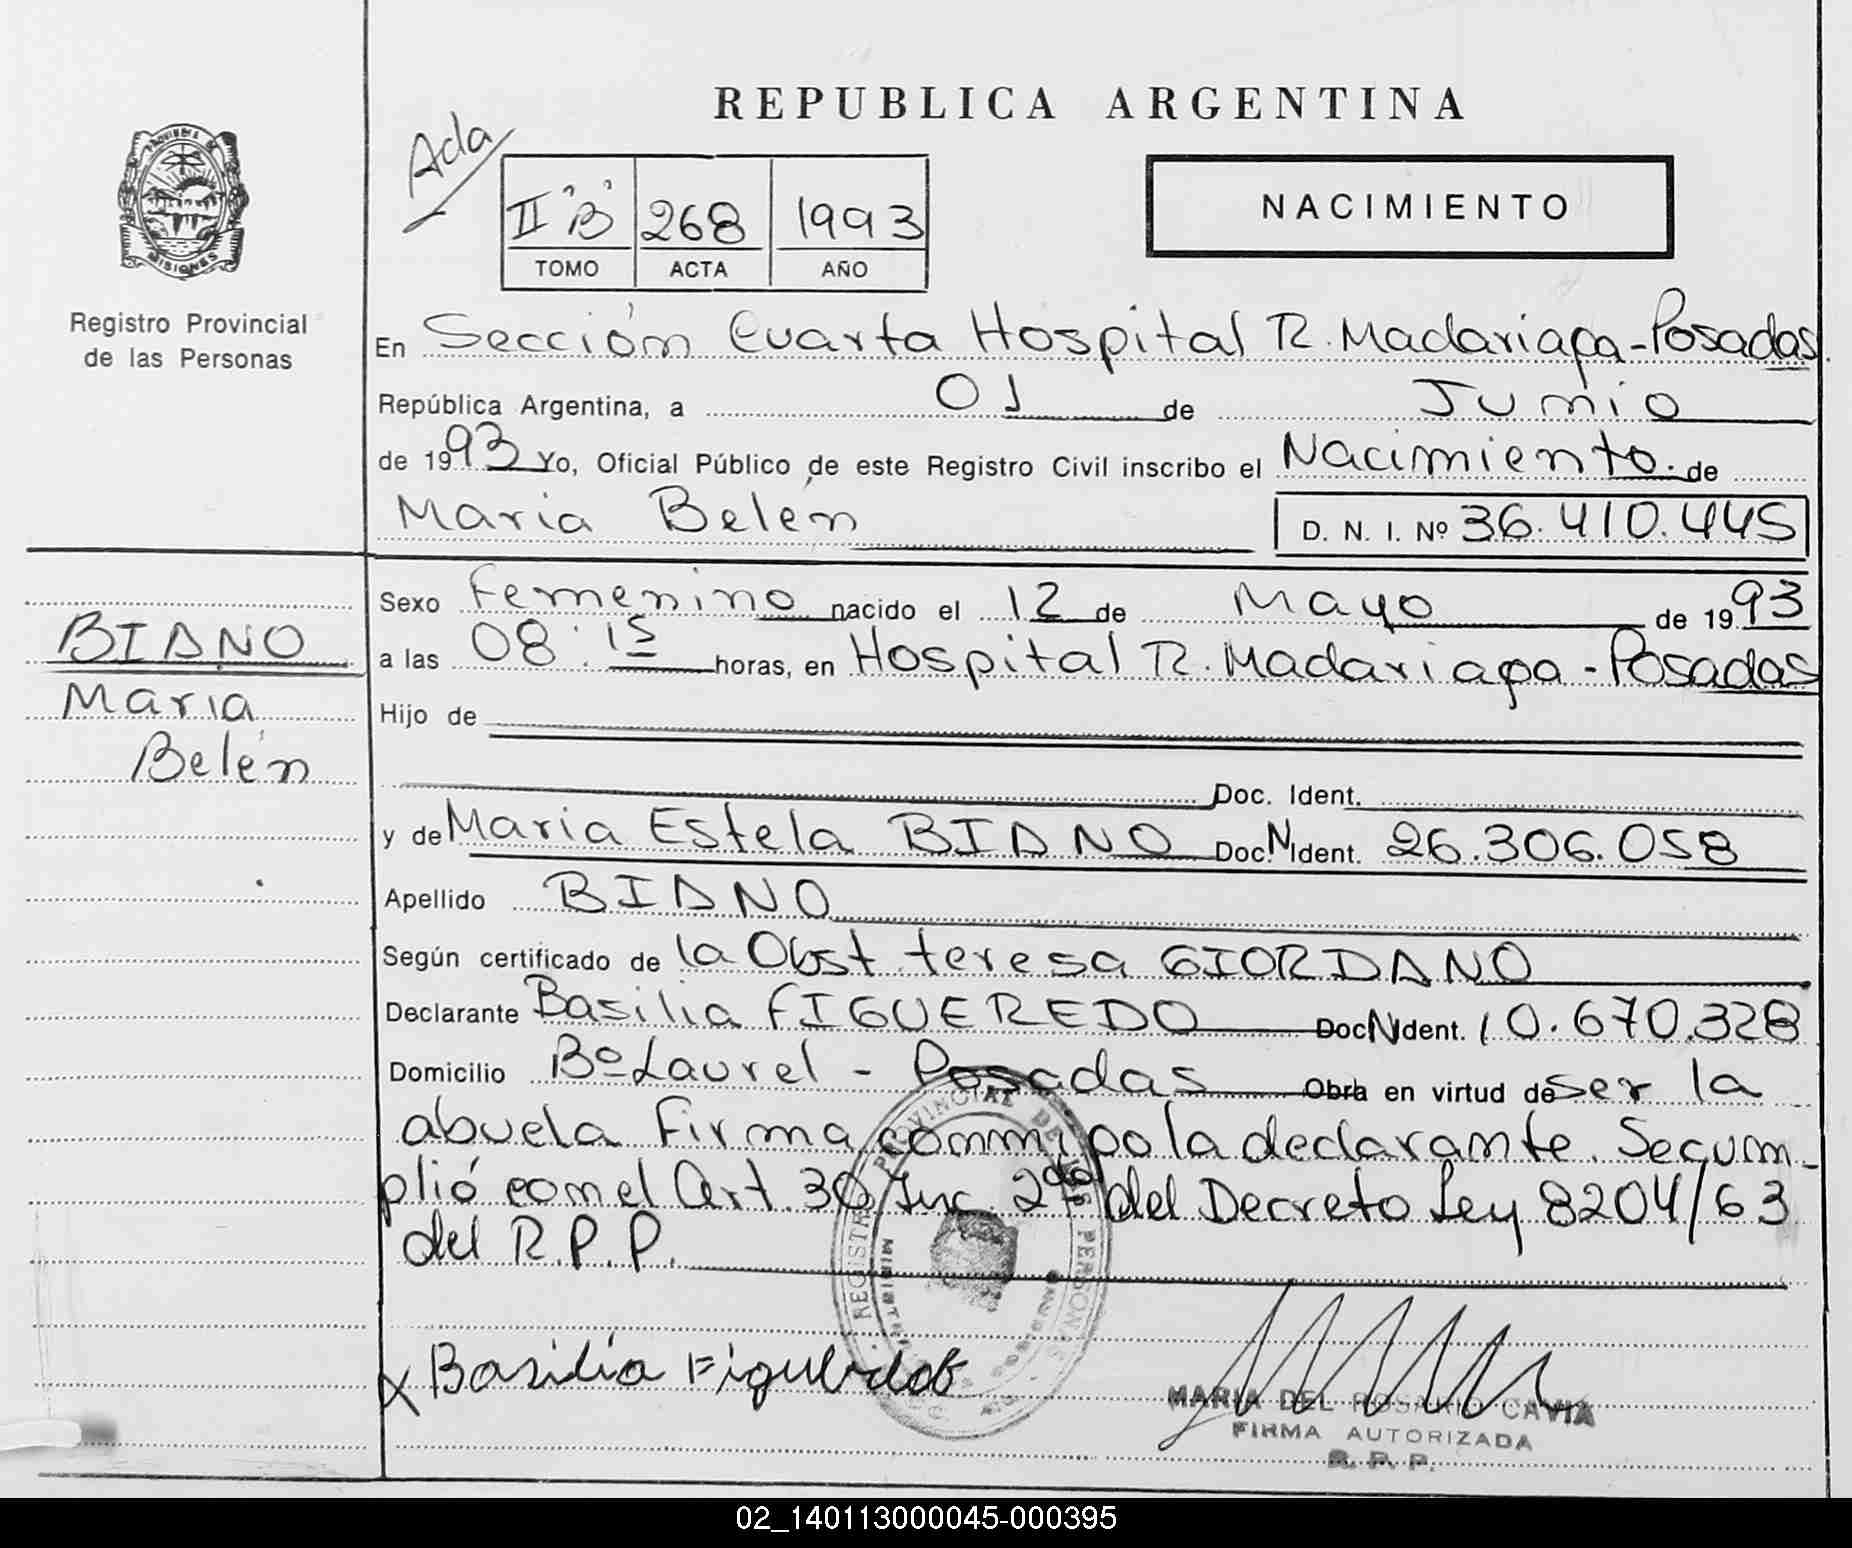 REPUBLICA ARGENTINA
Ada
II "B" 268 1993
TOMO ACTA AÑO
NACIMIENTO
PROVINCIA DE
MISIONES
Registro Provincial
de las Personas
En Sección Cuarta Hospital R. Madariaga - Posadas
República Argentina, a 01 de Junio
de 1993 Yo, Oficial Público de este Registro Civil inscribo el Nacimiento. de
Maria Belén D. N. I. Nº 36.410.445
Sexo Femenino nacido el 12 de Mayo de 1993
a las 08:15 horas, en Hospital R. Madariaga - Posadas
Hijo de
Doc. Ident.
y de Maria Estela BIANO Doc. N Ident. 26.306.058
Apellido BIANO
Según certificado de la Obst. teresa GIORDANO
Declarante Basilia FIGUEREDO Doc N Ident. 10.670.328
Domicilio Bº Laurel - Posadas Obra en virtud de ser la
abuela Firma conmigo la declarante. Se cum-
plió con el Art. 30 Inc. 2do del Decreto Ley 8204/63
del R.P.P.
BIANO
Maria
Belén
REGISTRO PROVINCIAL DE LAS PERSONAS
X Basilia Figueredo
MARIA DEL ROSARIO CAVIA
FIRMA AUTORIZADA
R. P. P.
02_140113000045-000395